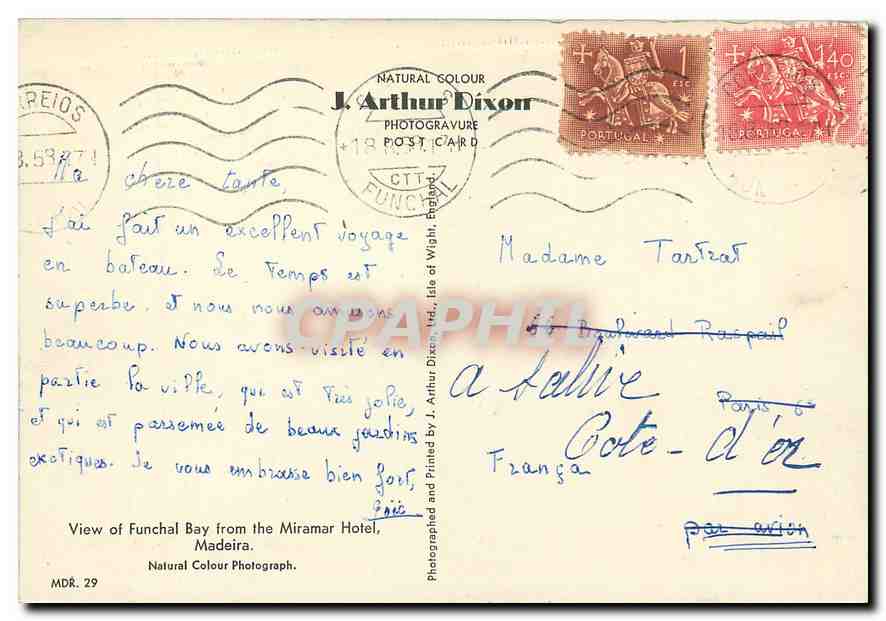 NATURAL COLOUR
J. Arthur Dixon
PHOTOGRAVURE
POST CARD
1
ESC.
PORTUGAL
1$40
ESC.
PORTUGAL
CORREIOS
CTT
FUNCHAL
Ma chere tante,
J'ai fait un excellent voyage
en bateau. Le temps est
superbe et nous nous amusons
beaucoup. Nous avons visité en
partie la ville, qui est très jolie,
et qui est parsemée de beaux jardins
exotiques. Je vous embrasse bien fort,
View of Funchal Bay from the Miramar Hotel,
Madeira.
Natural Colour Photograph.
MDR. 29
Photographed and Printed by J. Arthur Dixon, Ltd., Isle of Wight, England.
Madame Tartrat
36 Boulevard Raspail
Paris 6e
a
Cote-d'or
França
par avion
CPAPHIL